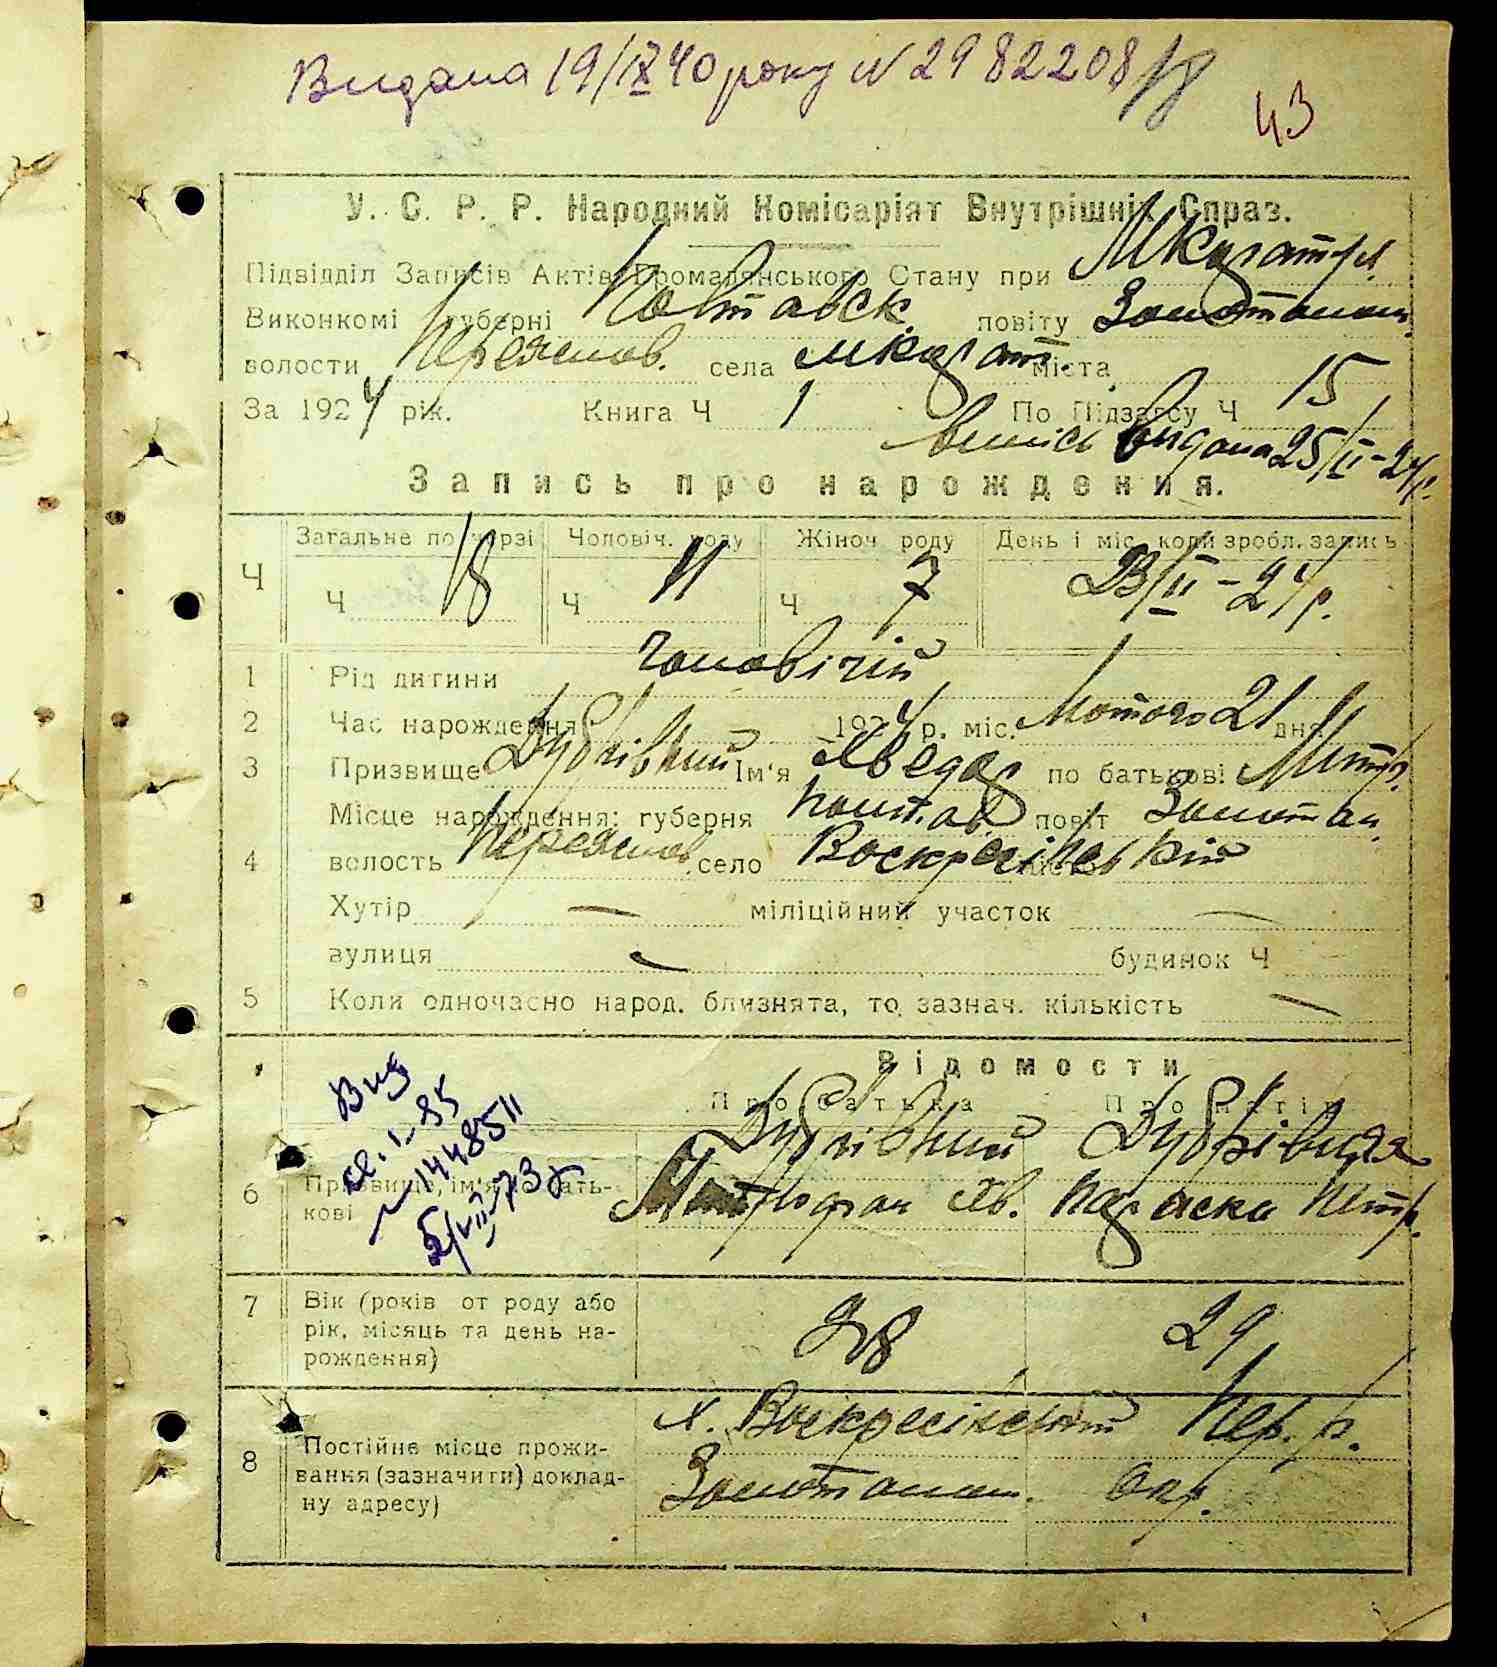 Видана 19/IX 40 року N 2982208
43
У. С. Р. Р. Народний Комісаріят Внутрішніх Справ.
Підвідділ Записів Актів Громадянського Стану при
Виконкомі губерні Полтавск. повіту Золотонош.
волости Переяслов. села міста
За 1924 рік. Книга Ч 1 По Підзагсу Ч 15
видана 25/II-24р.
Запись про нарождения.
Загальне по черзі Чоловіч. роду Жіноч. роду День і міс. коли зробл. запись
Ч Ч 18 Ч 11 Ч 7 23/II-24р.
1 Рід дитини чоловічій
2 Час нарождення 1924 р. міс. Лютого 21 дня
3 Призвище Дубрівний Ім'я Хведор по батькові Митр.
Місце нарождення: губерня Полтав. повіт Золотон.
4 волость Переяслов. село Воскресінський місто
Хутір — міліційний участок —
вулиця — будинок Ч
5 Коли одночасно народ. близнята, то зазнач. кількість —
Відомости
Про батька Про матір
Вид
144851
5/VII-73
6 Призвище, ім'я по батькові Дубрівний Митрофан Дубрівная Параска Петр.
7 Вік (років от роду або рік, місяць та день нарождення) 28 29
8 Постійне місце проживання (зазначити) докладну адресу) х. Воскресінський Пер. р.
Золотонош. окр.